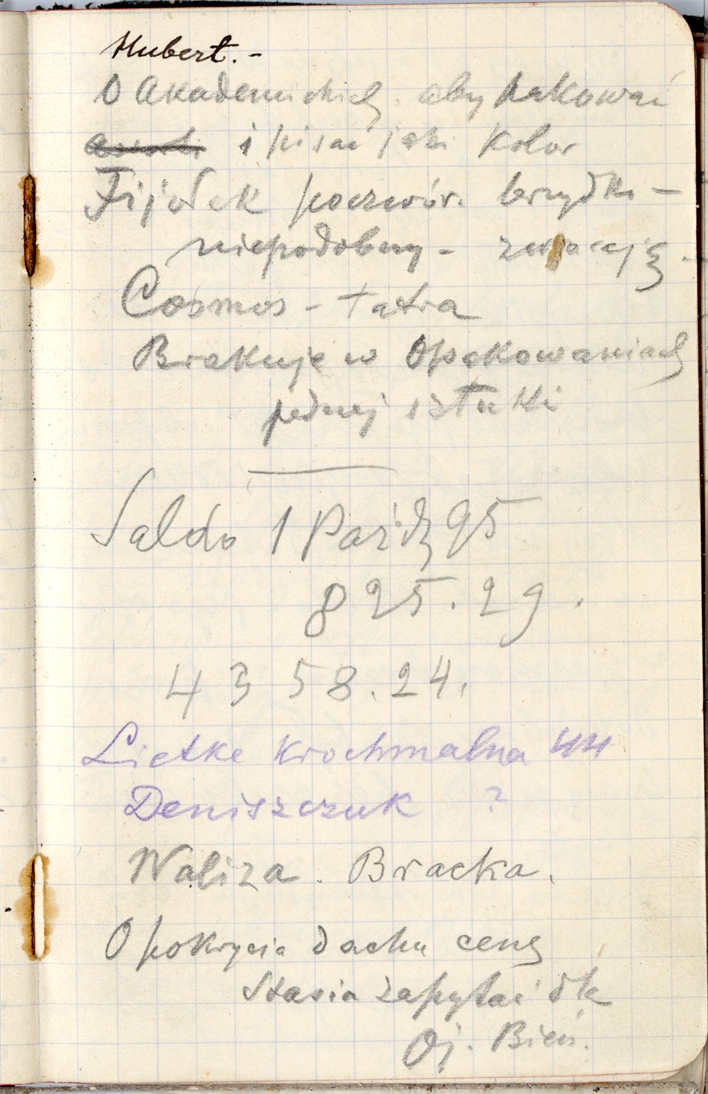 Hubert. -
O Akademickiej. aby pakować
i pisać jaki Kolor
Fijołek poczwór. brzydki -
niepodobny - zwracają -
Cosmos - tatra
Brakuje w Opakowaniach
jednej sztuki
Saldo 1 Paźdz 95
825.29.
4358.24.
Lietke Krochmalna 44
Deniszczuk ?
Waliza. Bracka.
O pokrycia dachu cenę
Stasia zapytać
Oj. Bień.